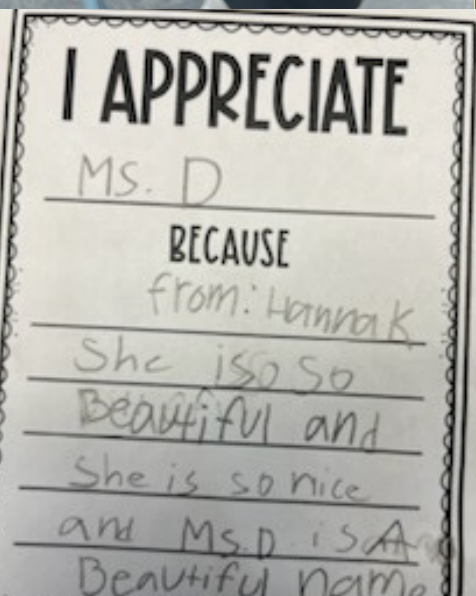 I APPRECIATE
Ms. D
BECAUSE
from: Hanna K
She iso so
Beautiful and
She is so nice
and Ms. D is A
Beautiful name